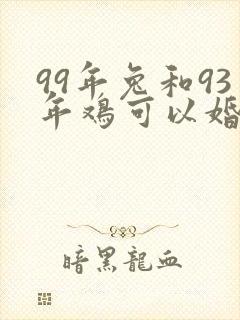 99年兔和93
年鸡可以婚
暗黑龍血